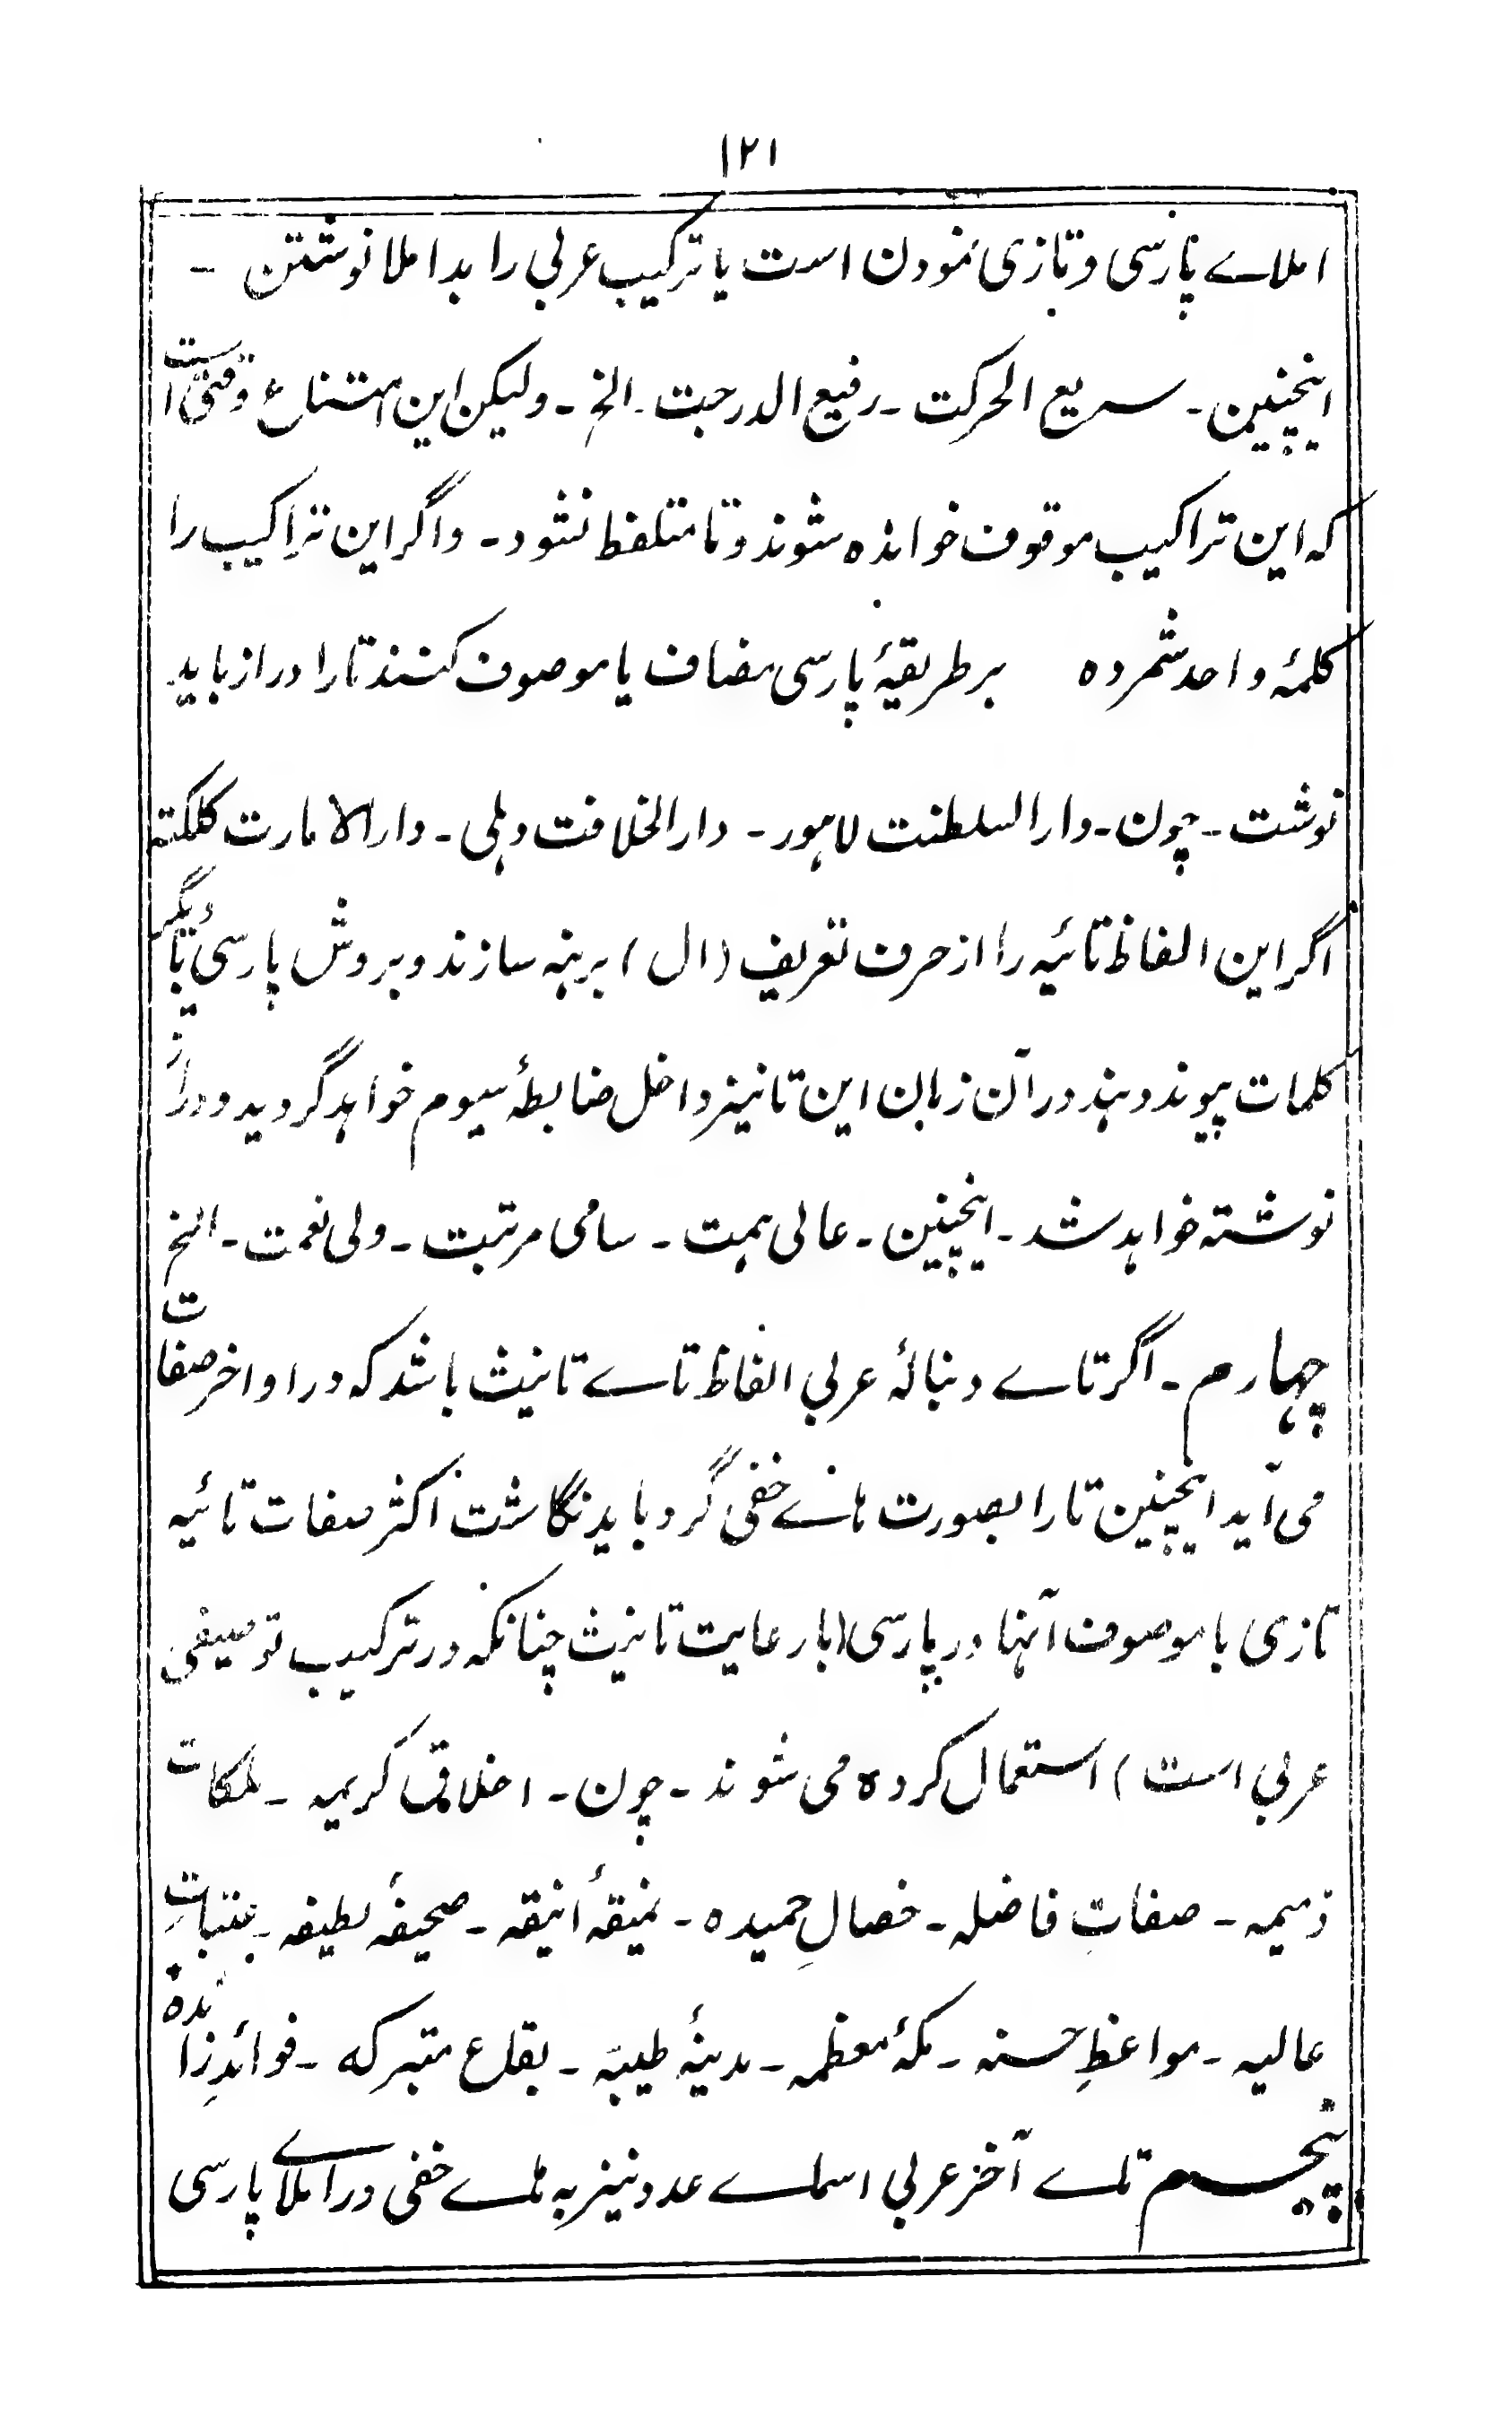 ۱۲۱
املاے پارسی و تازی نمودن است یا ترکیب عربی را بد املا نوشتن ۔
اینچنین ۔ سریع الحرکت ۔ رفیع الدرجت ۔ الخ ۔ ولیکن این امتناع وقتی است
که این تراکیب موقوف خوانده شوند و تا متلفظ نشود ۔ و اگر این تراکیب را
کلمۂ واحد شمرده بر طریقۂ پارسی مضاف یا موصوف کنند تا را دراز باید
نوشت ۔ چون ۔ دار السلطنت لاہور ۔ دار الخلافت دہلی ۔ دار الامارت کلکتہ
اگر این الفاظ تائیه را از حرف تعریف (ال) برہنہ سازند و بروش پارسی با دیگر
کلمات پیوند دہند در آن زمان این تا نیز داخل ضابطۂ سیوم خواہد گردید و دراز
نوشته خواہد شد ۔ اینچنین ۔ عالی ہمت ۔ سامی مرتبت ۔ ولی نعمت ۔ الخ
چہارم ۔ اگر تاے دنبالۂ عربی الفاظ تاے تانیث باشد که در اواخر صفات
می آید اینچنین تا را بصورت ہاے خفی گرد باید نگاشت اکثر صفات تائیه
تازی با موصوف آنہا در پارسی (با رعایت تانیث چنانکه در ترکیب توصیفی
عربی است) استعمال کرده می شوند ۔ چون ۔ اخلاقِ کریمه ۔ ملکات
ذمیمه ۔ صفاتِ فاضله ۔ خصالِ حمیده ۔ نمیقۂ انیقه ۔ صحیفۂ لطیفه ۔ عتباتِ
عالیه ۔ مواعظِ حسنه ۔ مکۂ معظمه ۔ مدینۂ طیبّه ۔ بقاع متبرکه ۔ فوائدِ زائده
پنجم تاے آخر عربی اسماے عدد نیز به ہاے خفی در املاے پارسی